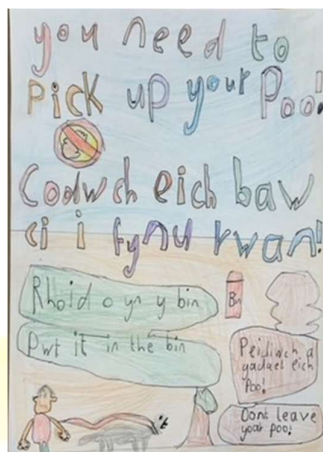 you need to
pick up your poo!
Codwch eich baw
ci i fynu rwan!
Rhoid o yn y bin
Bin
Pwt it in the bin
Peidiwch a
gadael eich
Poo!
Dont leave
your poo!